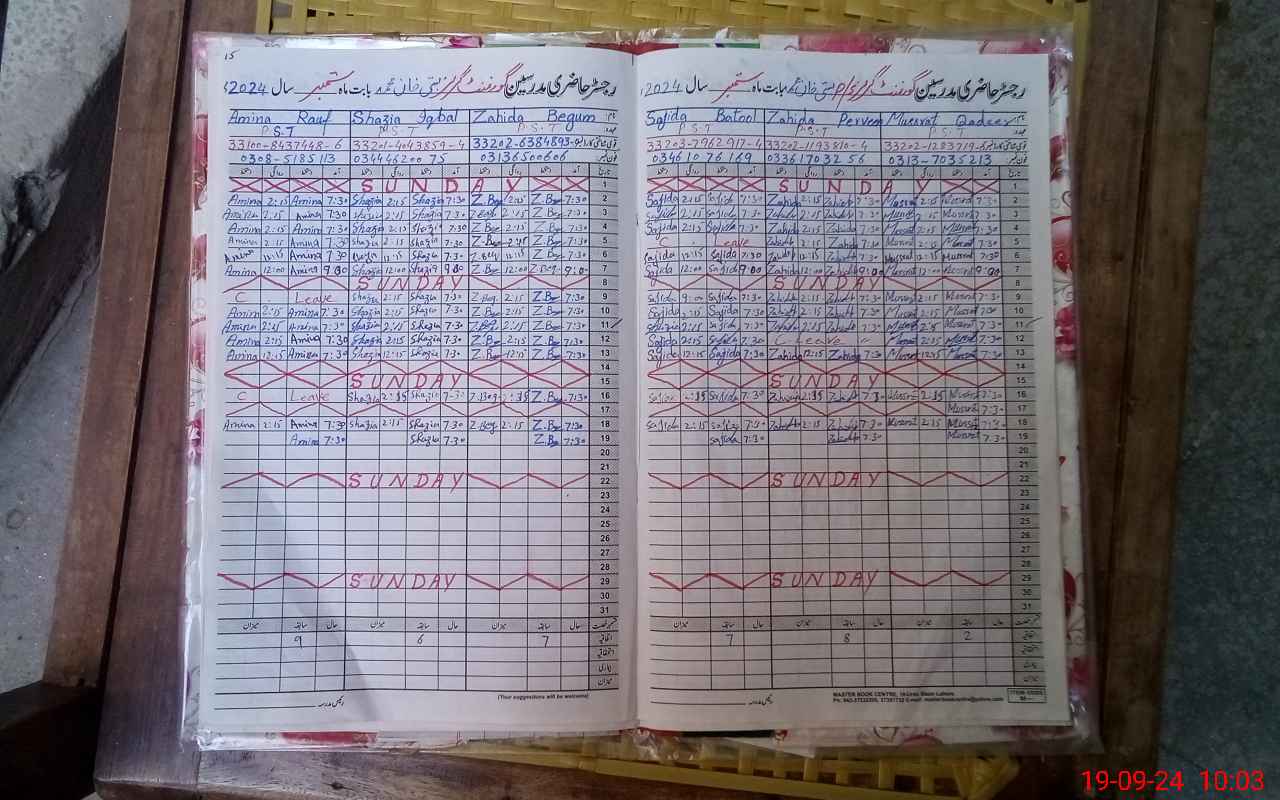 15
رجسٹر حاضری مدرسین گورنمنٹ گرلز بستی خان محمد بابت ماہ ستمبر سال 2024
Amina Rauf Shazia Iqbal Zahida Begum نام
P.S.T P.S.T P.S.T عہدہ
33100-8437448-6 33201-4043859-4 33202-6384893-
0308-5185113 03444620075 03136500606 فون نمبر
SUNDAY 1
Amina 2:15 Amina 7:30 Shazia 2:15 Shazia 7:30 Z.Beg 2:15 Z.Beg 7:30 2
Amina 2:15 Amina 7:30 Shazia 2:15 Shazia 7:30 Z.Beg 2:15 Z.Beg 7:30 3
Amina 2:15 Amina 7:30 Shazia 2:15 Shazia 7:30 Z.Beg 2:15 Z.Beg 7:30 4
Amina 2:15 Amina 7:30 Shazia 2:15 Shazia 7:30 Z.Beg 2:15 Z.Beg 7:30 5
Amina 12:15 Amina 7:30 12:15 Shazia 7:30 Z.Beg 12:15 Z.Beg 7:30 6
Amina 12:00 Amina 9:00 Shazia 12:00 Shazia 9:00 Z.Beg 12:00 Z.Beg 9:00 7
SUNDAY 8
C. Leave Shazia 2:15 Shazia 7:30 Z.Beg 2:15 Z.Beg 7:30 9
Amina 2:15 Amina 7:30 Shazia 2:15 Shazia 7:30 Z.Beg 2:15 Z.Beg 7:30 10
Amina 2:15 Amina 7:30 Shazia 2:15 Shazia 7:30 Z.Beg 2:15 Z.Beg 7:30 11
Amina 2:15 Amina 7:30 Shazia 2:15 Shazia 7:30 Z.Beg 2:15 Z.Beg 7:30 12
Amina 12:15 Amina 7:30 Shazia 12:15 Shazia 7:30 Z.Beg 12:15 Z.Beg 7:30 13
14
SUNDAY 15
C Leave Shazia 2:15 Shazia 7:30 Z.Beg 2:15 Z.Beg 7:30 16
17
Amina 2:15 Amina 7:30 Shazia 2:15 Shazia 7:30 Z.Beg 2:15 Z.Beg 7:30 18
Amina 7:30 Shazia 7:30 Z.Beg 7:30 19
20
21
SUNDAY 22
23
24
25
26
27
28
SUNDAY 29
30
31
میزان سابقہ حال میزان سابقہ حال میزان سابقہ حال
9 6 7 اتفاقیہ
میزان
(Your suggestions will be welcome)
رئیس مدرسہ
رجسٹر حاضری مدرسین گورنمنٹ گرلز بستی خان محمد بابت ماہ ستمبر سال 2024
Sajida Batool Zahida Perveen Mussrat Qadeer نام
P.S.T P.S.T P.S.T عہدہ
33203-7962917-4 33202-1193810-4 33202-1283719-
03461076169 03361703256 0313-7035213 فون نمبر
SUNDAY 1
Sajida 2:15 Sajida 7:30 Zahida 2:15 Zahida 7:30 Mussrat 2:15 Mussrat 7:30 2
Sajida 2:15 Sajida 7:30 Zahida 2:15 Zahida 7:30 Mussrat 2:15 Mussrat 7:30 3
Sajida 2:15 Sajida 7:30 Zahida 2:15 Zahida 7:30 Mussrat 2:15 Mussrat 7:30 4
C. Leave Zahida 2:15 Zahida 7:30 Mussrat 2:15 Mussrat 7:30 5
Sajida 12:15 Sajida 7:30 Zahida 12:15 Zahida 7:30 Mussrat 12:15 Mussrat 7:30 6
Sajida 12:00 Sajida 9:00 Zahida 12:00 Zahida 9:00 Mussrat 12:00 Mussrat 9:00 7
SUNDAY 8
Sajida 9:00 Sajida 7:30 Zahida 2:15 Zahida 7:30 Mussrat 2:15 Mussrat 7:30 9
Sajida 2:15 Sajida 7:30 Zahida 2:15 Zahida 7:30 Mussrat 2:15 Mussrat 7:30 10
Sajida 2:15 Sajida 7:30 Zahida 2:15 Zahida 7:30 Mussrat 2:15 Mussrat 7:30 11
Sajida 2:15 Sajida 7:30 C Leave Mussrat 2:15 Mussrat 7:30 12
Sajida 12:15 Sajida 7:30 Zahida 12:15 Zahida 7:30 Mussrat 12:15 Mussrat 7:30 13
14
SUNDAY 15
Sajida 2:15 Sajida 7:30 Zahida 2:15 Zahida 7:30 Mussrat 2:15 Mussrat 7:30 16
Mussrat 7:30 17
Sajida 2:15 Sajida 7:30 Zahida 2:15 Zahida 7:30 Mussrat 2:15 Mussrat 7:30 18
Sajida 7:30 Zahida 7:30 Mussrat 7:30 19
20
21
SUNDAY 22
23
24
25
26
27
28
SUNDAY 29
30
31
میزان سابقہ حال میزان سابقہ حال میزان سابقہ حال
7 8 2 اتفاقیہ
میزان
MASTER BOOK CENTRE, Lahore.
رئیس مدرسہ
19-09-24 10:03